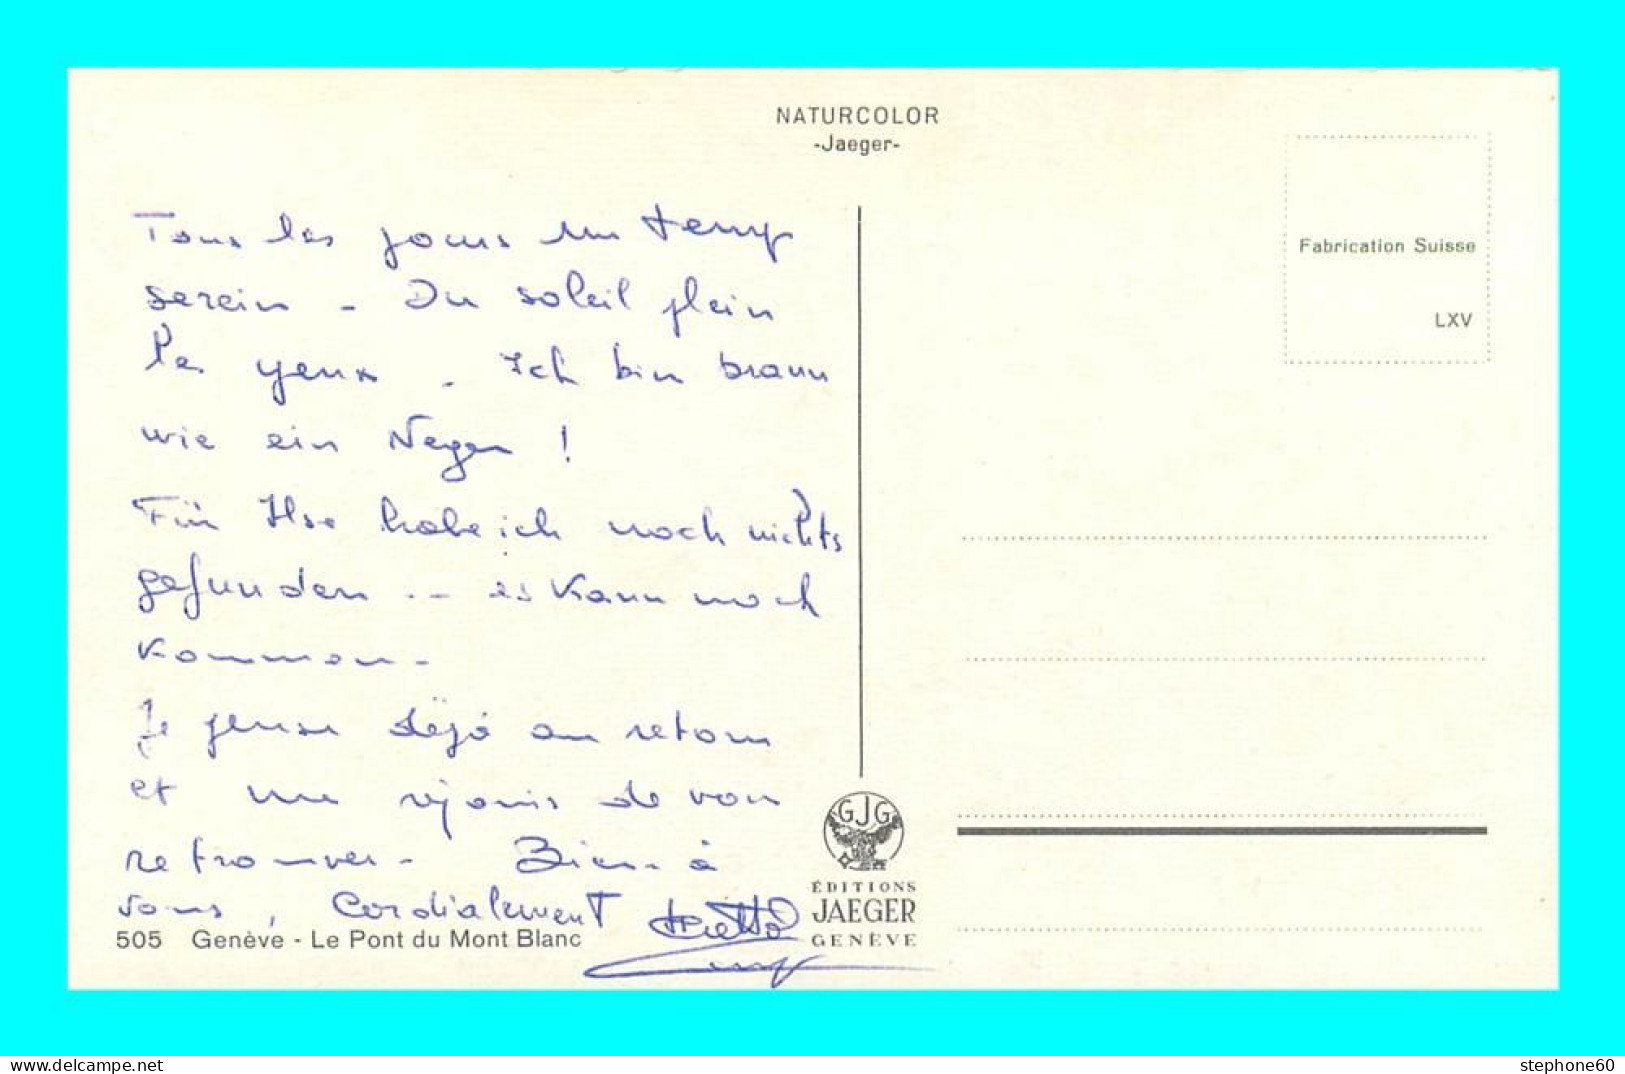 NATURCOLOR
-Jaeger-
Fabrication Suisse
LXV
Tous les jours un temps
serein - Du soleil plein
les yeux - Ich bin braun
wie ein Neger !
Für Ilse habe ich noch nichts
gefunden -- es kann noch
kommen -
Je pense déjà au retour
et me réjouis de vous
retrouver - Bien à
vous, Cordialement
GJG
ÉDITIONS
JAEGER
GENÈVE
505 Genève - Le Pont du Mont Blanc
delcampe.net
stephone60